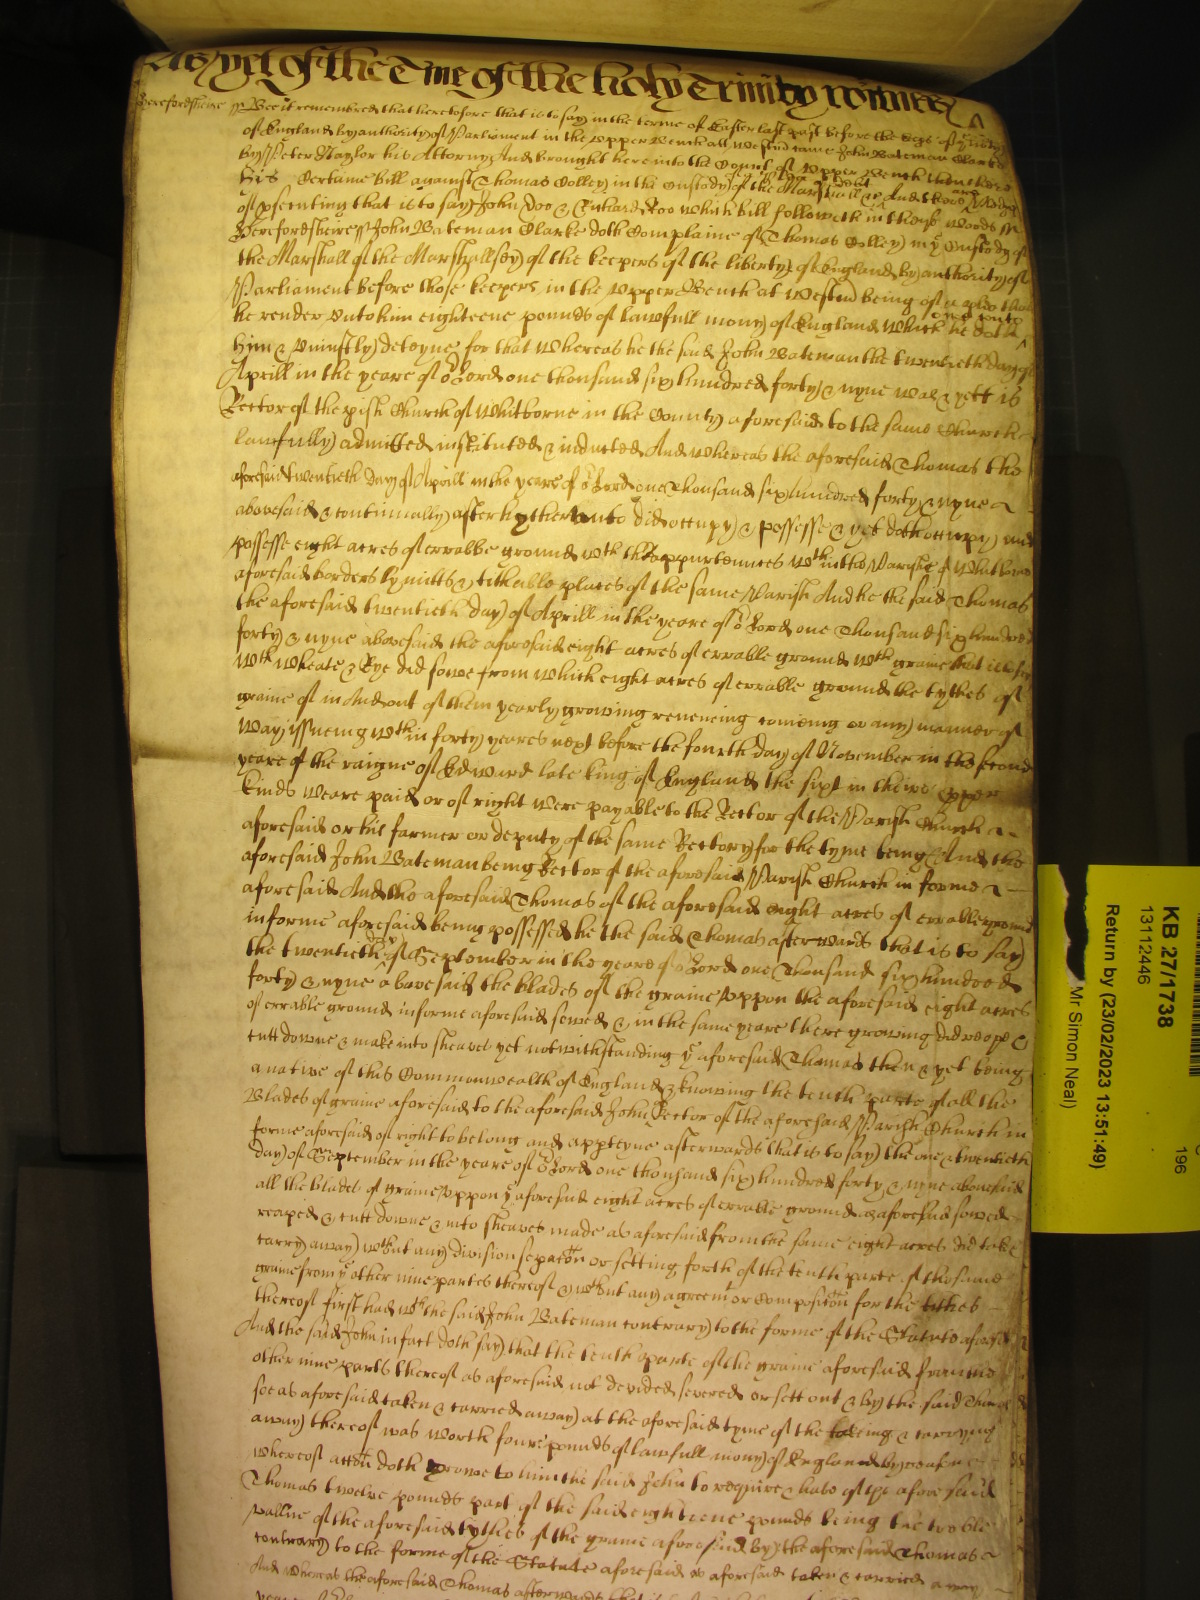 As yet of the Tme of the holy Trinity
Herefordshire ss Bee it remembred that heretofore that is to say in the terme of Easter last past before the keps of ye lib'ty
of England by authority of Parliament in the upper Bench att Westm̃ came John Bateman Clarke
by Peter Naylor his Attorny And brought here into the Court of upper Bench then there
his Certaine bill against Thomas Colley in the Custody of the Marshall &c And there are pledges
of p'secuting that is to say John Doo & Richard Roo which bill followeth in these words ss
Herefordshire ss John Bateman Clarke doth Complaine of Thomas Colley in ye Custody of
the Marshall of the Marshallsey of the keepers of the liberty of England by authority of
Parliament before those keepers in the upper Bench at Westm̃ being of a plea that
he render unto him eighteene pounds of lawfull mony of England which he doth owe unto
him & uniustly deteyne for that whereas he the said John Bateman the twentieth day of
Aprill in the yeare of or Lord one thousand six hundred forty & nyne was & yett is
Rector of the p'ish Church of Whitborne in the County aforesaid to the same Church
lawfully admitted instituted & inducted And whereas the aforesaid Thomas the
aforesaid twentieth day of Aprill in the yeare of or Lord one Thousand six hundred forty & nyne
abovesaid & continually after hytherunto did occupy & possesse & yet doth occupy and
possesse eight acres of errable ground wth th'appurtennces wthin the Parishe of Whitborne
aforesaid borders lymitts & titheable places of the same Parish And he the said Thomas
the aforesaid twentieth day of Aprill in the yeare of or Lord one Thousand six hundred
forty & nyne abovesaid the aforesaid eight acres of errable ground wth graine that is to say
wth wheate & Rye did sowe from which eight acres of errable ground the tythes of
graine of in And out of them yearly growing renewing comeing or any manner of
way issueing wthin forty yeares next before the fourth day of November in the second
yeare of the raigne of Edward late king of England the sixt in theire proper
kinds weare paid or of right were payable to the Rector of the Parish Church
aforesaid or his farmer or deputy of the same Rectory for the tyme being And the
aforesaid John Bateman being Rector of the aforesaid Parish Church in forme
aforesaid And the aforesaid Thomas of the aforesaid eight acres of errable ground
in forme aforesaid being possessed he the said Thomas afterwards that is to say
the twentieth day of September in the yeare of or Lord one Thousand six hundred
forty & nyne abovesaid the blades of the graine uppon the aforesaid eight acres
of errable ground in forme aforesaid sowed & in the same yeare there growing did reape &
cutt downe & make into sheaves yet notwithstanding ye aforesaid Thomas then & yet being
a native of this Commonwealth of England & knowing the tenth parte of all the
Blades of graine aforesaid to the aforesaid John Rector of the aforesaid Parish Church in
forme aforesaid of right to belong and apperteyne afterwards that is to say the one & twentieth
day of September in the yeare of or Lord one thousand six hundred forty & nyne abovesaid
all the blades of graine uppon ye aforesaid eight acres of errable ground as aforesaid sowed
reaped & cutt downe & into sheaves made as aforesaid from the same eight acres did take &
carry away wthout any division separacōn or setting forth of the tenth parte of the same
graine from ye other nine partes thereof & wthout any agreemt or composicōn for the tithes
thereof first had wth the said John Bateman contrary to the forme of the Statute aforesaid
And the said John in fact doth say that the tenth parte of the graine aforesaid from the
other nine parts thereof as aforesaid not devided severed or sett out & by the said Thomas
soe as aforesaid taken & carried away at the aforesaid tyme of the takeing & carrying
away thereof was worth foure pounds of lawfull mony of England by reason
whereof accōn doth growe to him the said John to require & have of the aforesaid
Thomas twelve pounds part of the said eighteene pounds being the treble
vallue of the aforesaid tythes of the graine aforesaid by the aforesaid Thomas
contrary to the forme of the Statute aforesaid as aforesaid taken & carried away
And whereas the aforesaid Thomas afterwards that is
KB 27/1738
13112446
Return by (23/02/2023 13:51:49)
Mr Simon Neal)
196